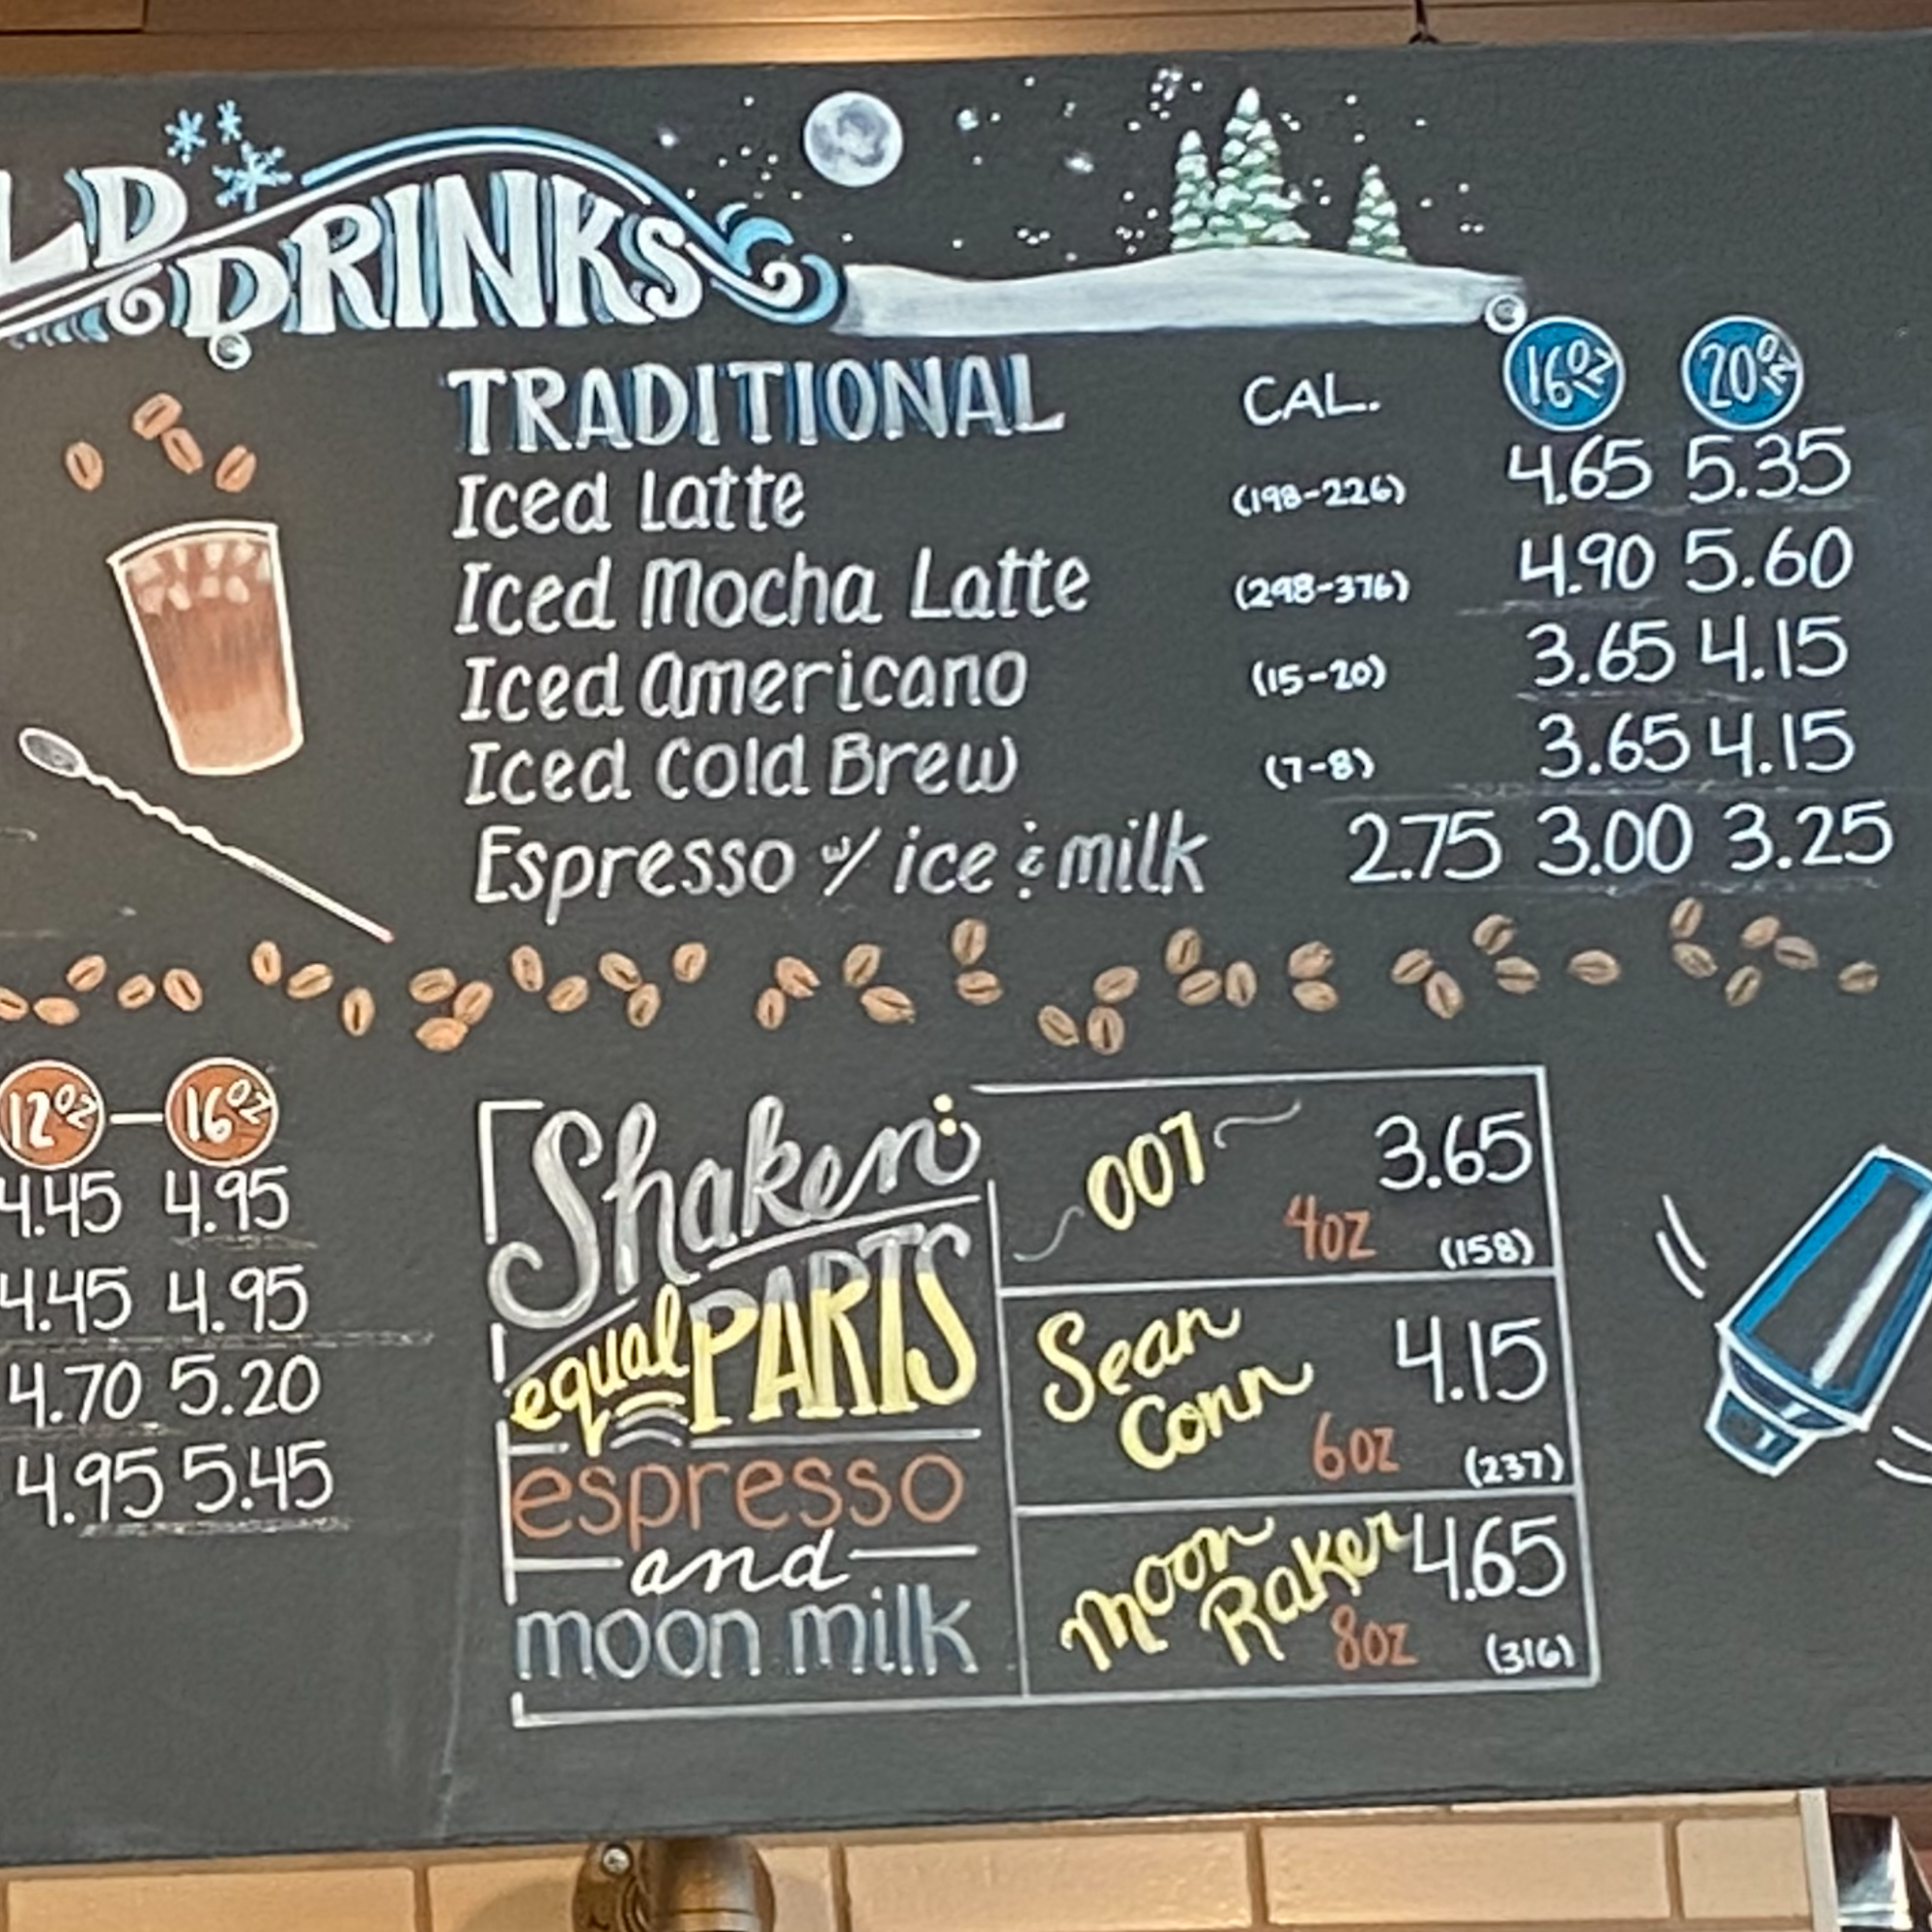 LD DRINKS
TRADITIONAL CAL. 16oz 20oz
Iced Latte (198-226) 4.65 5.35
Iced Mocha Latte (298-376) 4.90 5.60
Iced Americano (15-20) 3.65 4.15
Iced Cold Brew (7-8) 3.65 4.15
Espresso w/ ice & milk 2.75 3.00 3.25
12oz — 16oz
4.45 4.95
4.45 4.95
4.70 5.20
4.95 5.45
Shaken:
equal PARTS
espresso
and
moon milk
007 3.65
4oz (158)
Sean 4.15
Conn
6oz (237)
Moon 4.65
Raker
8oz (316)